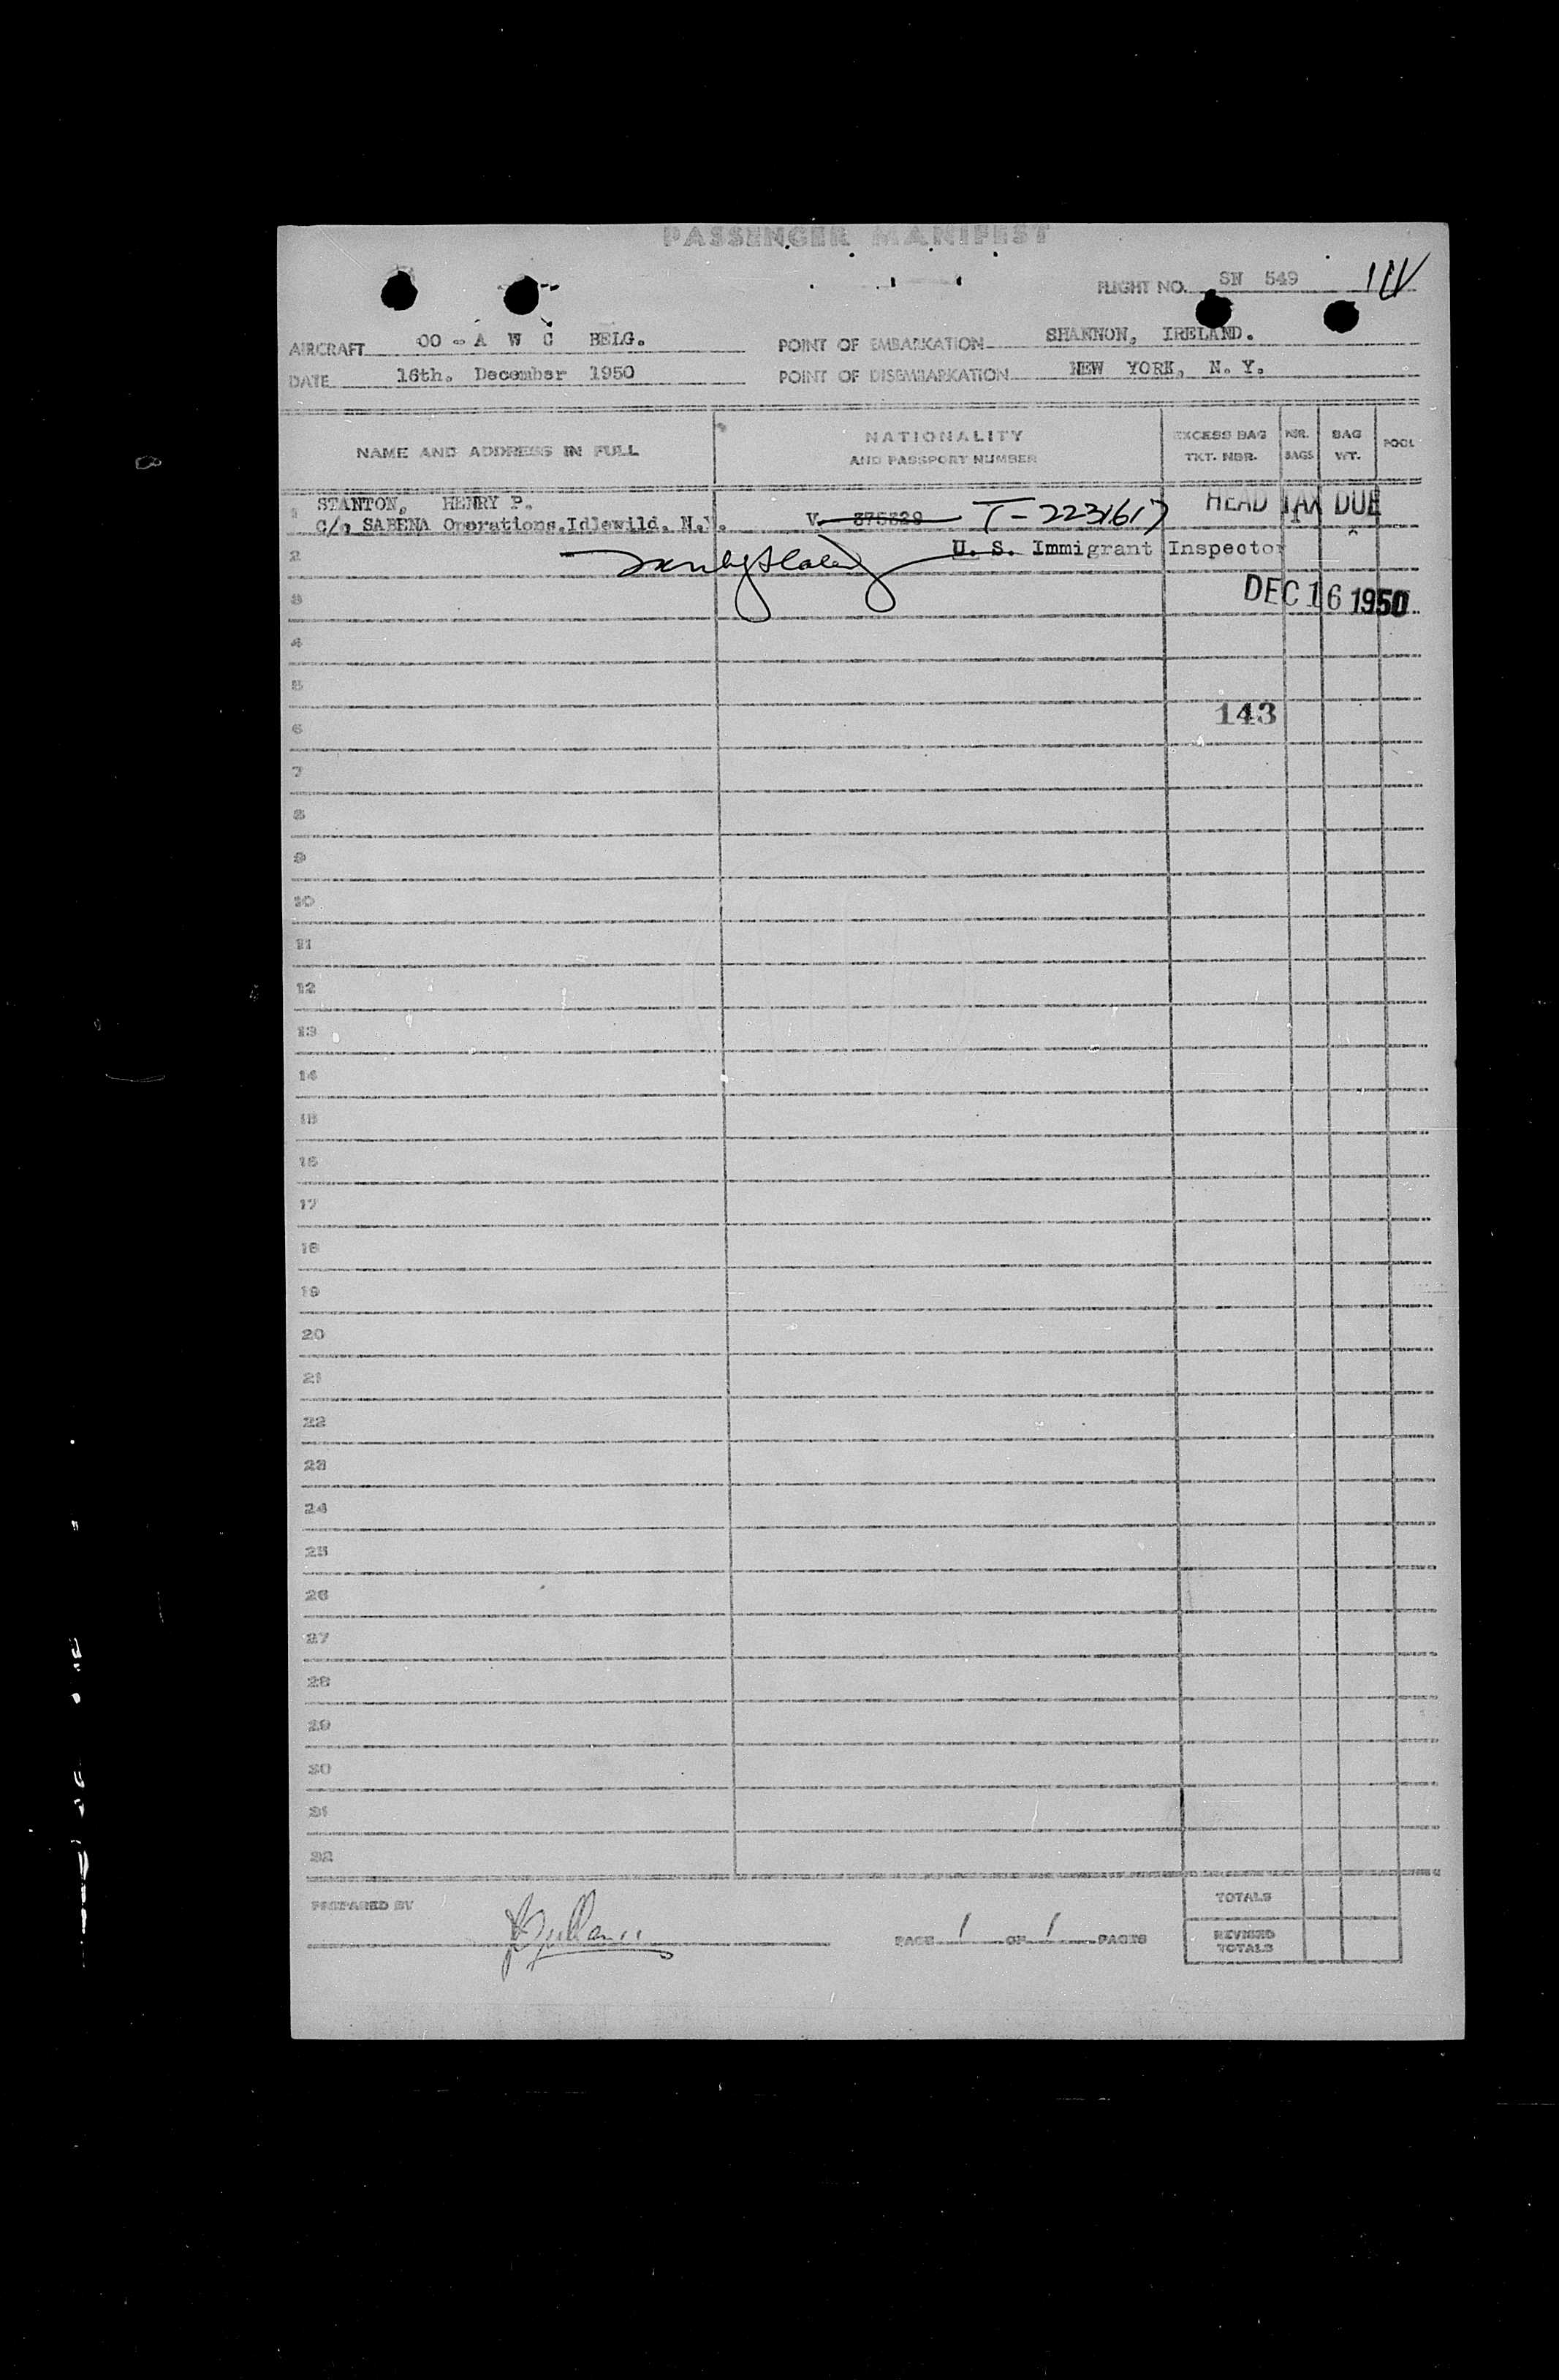 PASSENGER MANIFEST
FLIGHT NO. SN 549
AIRCRAFT OO - A W C BELG. POINT OF EMBARKATION SHANNON, IRELAND.
DATE 16th. December 1950 POINT OF DISEMBARKATION NEW YORK, N. Y.
NAME AND ADDRESS IN FULL NATIONALITY AND PASSPORT NUMBER EXCESS BAG TKT. NBR. NBR. BAGS BAG WT. POOL
1 STANTON, HENRY P. HEAD TAX DUE
C/o SABENA Operations, Idlewild, N.Y. V. 375329 T-2231617
2 U. S. Immigrant Inspector
3 DEC 16 1950
4
5
6 143
7
8
9
10
11
12
13
14
15
16
17
18
19
20
21
22
23
24
25
26
27
28
29
30
31
32
PREPARED BY PAGE 1 OF 1 PAGES
TOTALS
REVISED TOTALS